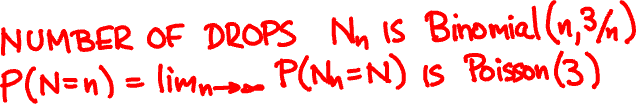 NUMBER OF DROPS Nn IS Binomial(n,3/n)
P(N=n) = limn→∞ P(Nn=N) IS Poisson(3)